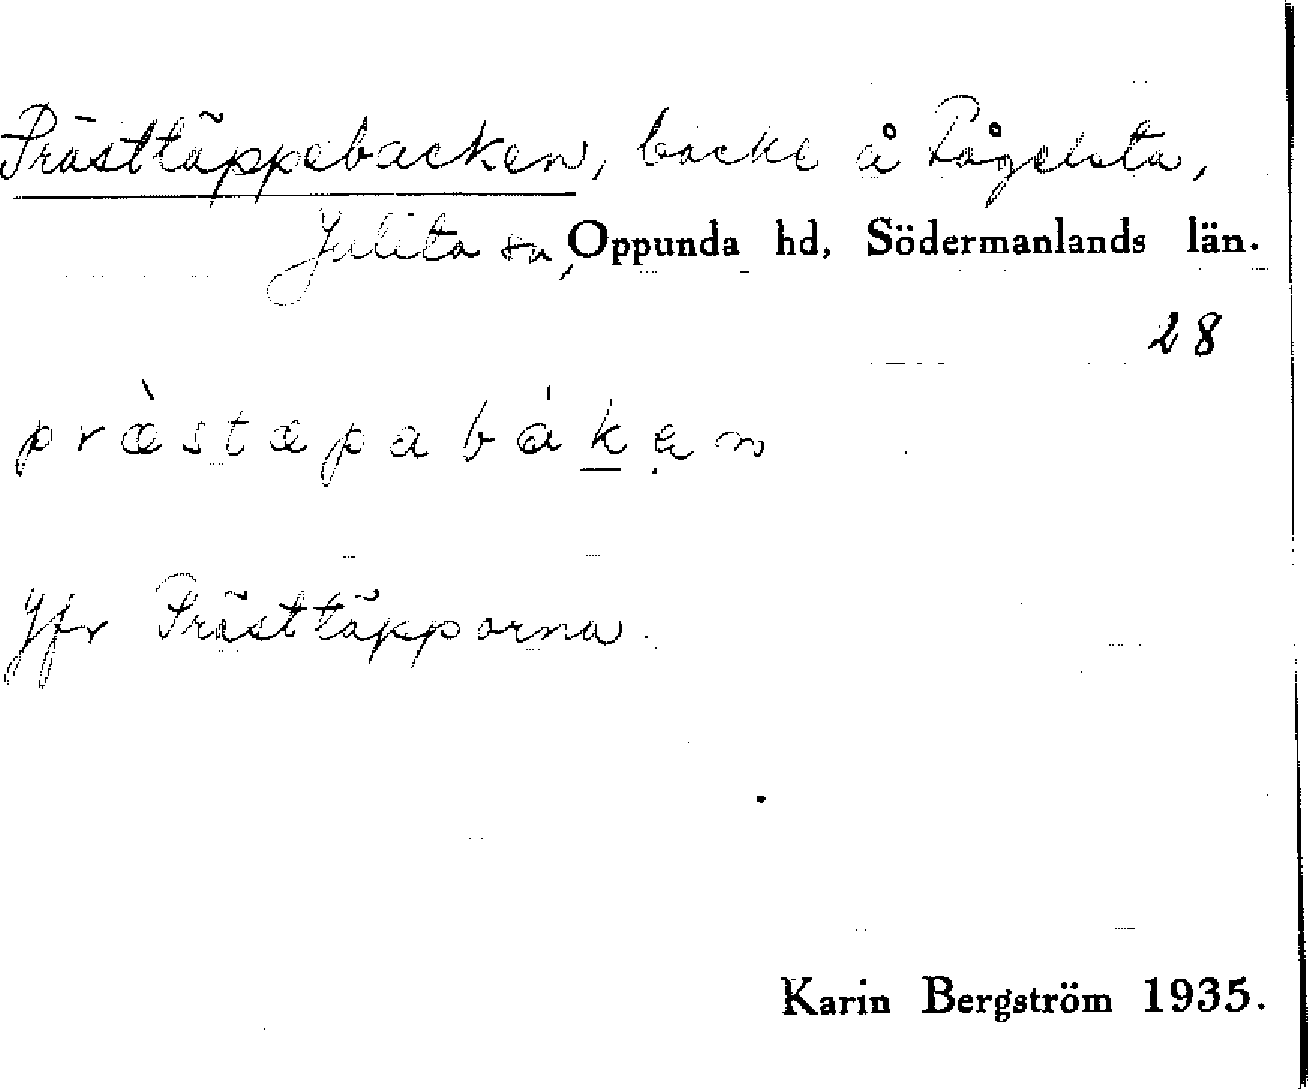 Prästtäppebacken, backe å Pågelsta,
Julita sn, Oppunda hd, Södermanlands län.
28
præ̀stæpabák̲ęn
Jfr Prästtäpporna.
Karin Bergström 1935.